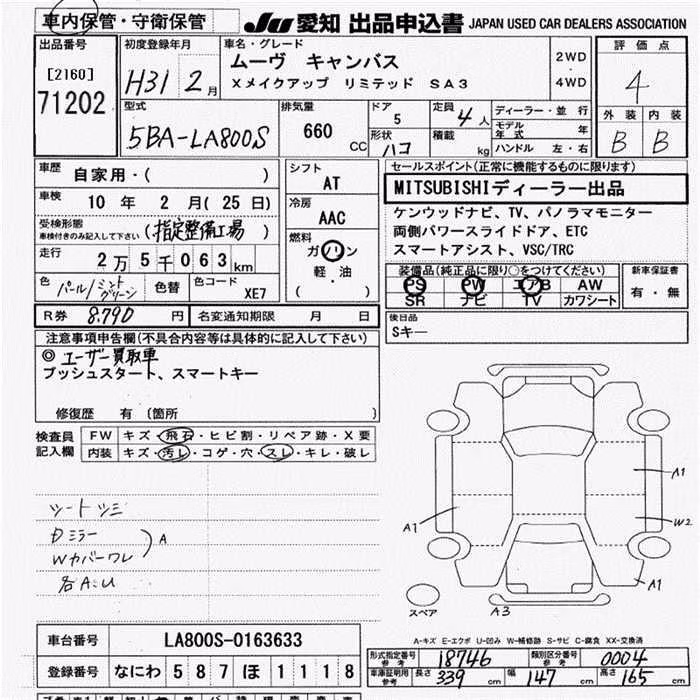 車内保管・守衛保管
JU 愛知 出品申込書 JAPAN USED CAR DEALERS ASSOCIATION
出品番号
[2160]
71202
初度登録年月
H31 2月
車名・グレード
ムーヴ キャンバス
Xメイクアップ リミテッド SA3
2WD
・
4WD
評価点
4
外装 内装
B B
型式
5BA-LA800S
排気量
660 CC
ドア
5
形状
ハコ
定員
4人
積載 kg
ディーラー・並行
モデル年式 年
ハンドル 左・右
車歴
自家用・( )
車検
10年 2月(25日)
受検形態
車検付きのみ記入して下さい
(指定整備工場)
走行
2万5千063km
色
パール/ミント
グリーン
色替
色コード
XE7
シフト
AT
冷房
AAC
燃料
ガソリン
軽・油
( )
セールスポイント(正常に機能するものに限ります)
MITSUBISHIディーラー出品
ケンウッドナビ、TV、パノラマモニター
両側パワースライドドア、ETC
スマートアシスト、VSC/TRC
装備品(純正品に限り○をつけてください)
PS PW エアB AW
SR ナビ TV カワシート
新車保証書
有・無
R券 8.790円 名変通知期限 月 日
後日品
Sキー
注意事項申告欄(不具合内容等は具体的に記入して下さい)
◎ユーザー買取車
プッシュスタート、スマートキー
修復歴 有(箇所 )
検査員
記入欄
FW キズ・飛石・ヒビ割・リペア跡・X要
内装 キズ・汚レ・コゲ・穴・スレ・キレ・破レ
Dミラー
Wカバーワレ
A
各A.U
A1
A1
W2
A1
スペア
A3
A-キズ E-エクボ U-凹み W-補修跡 S-サビ C-腐食 XX-交換済
車台番号 LA800S-0163633
登録番号 なにわ 587 ほ 1118
形式指定番号
参考
18746
類別区分番号
参考
0004
車庫証明用
参考
長さ 339cm 幅 147cm 高さ 165cm